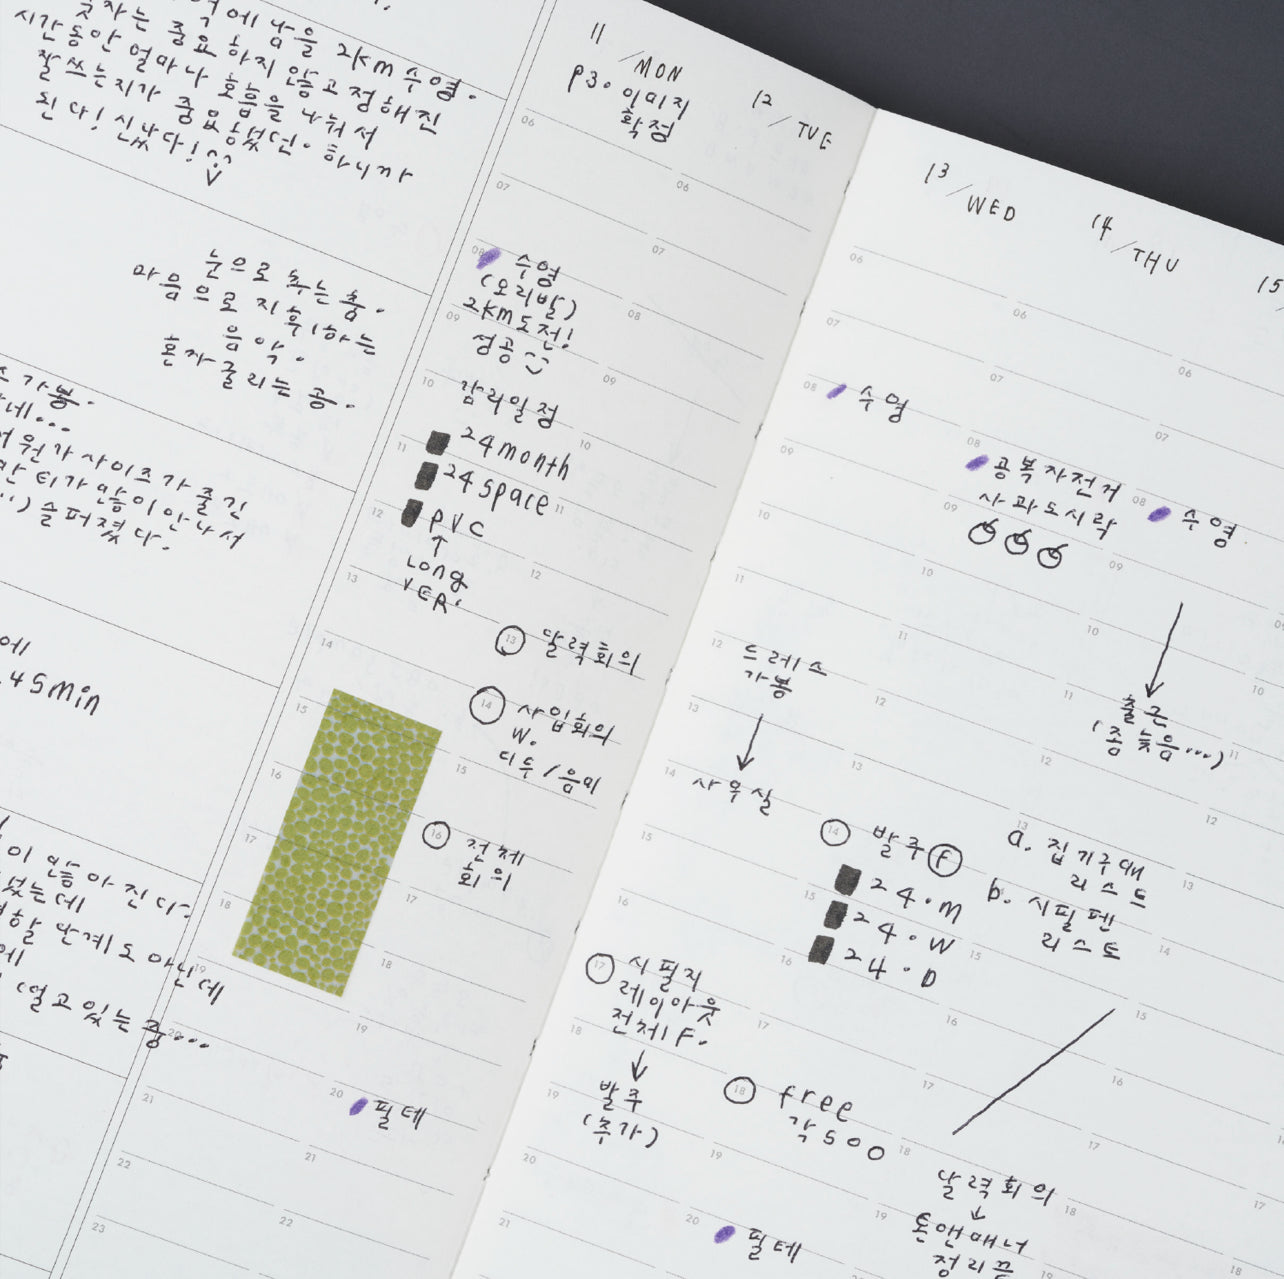 에 남을 2km 수영.
숫자는 중요하지 않고 정해진
시간동안 얼마나 호흡을 나눠서
잘 쓰는지가 중요했던. 하니까
된다! 신났다!
눈으로 추는 춤.
마음으로 지휘하는
음악.
혼자 굴리는 공.
가봉.
네...
사이즈가 줄긴
티가 많이 안 나서
슬퍼졌다.
에
45min
이 많아진다.
었는데
할 단계도 아닌데
에
떨고 있는 중...
11 / MON
P3. 이미지
확정
06
07
08
수영
(오리발)
2km도전!
09
성공
10
감리일정
11
24month
24space
12
PVC
↑
Long
VER.
13
14
15
16
17
18
19
20
21
22
23
12 / TUE
06
07
08
09
10
11
12
13 달력회의
14 사입회의
W.
두두/음미
15
16 전체
회의
17
18
19
20 필테
21
22
13 / WED
06
07
08 수영
09
10
11
12 드레스
가봉
↓
13
14 사무실
15
16
17 시필지
레이아웃
전체 F.
↓
18
19 발주
(추가)
20
21
14 / THU
06
07
08 공복자전거
사과도시락
09
10
11
12
13
14 발주 F
24.M
15
24.W
16
24.D
17
18 free
각500
19
20 필테
15
06
07
08 수영
09
10
↓
11 출근
(좀 늦음...)
12
13
a. 집기구매
리스트
b. 시필펜
리스트
14
15
16
17
18
달력회의
↓
19
톤앤매너
정리
09
10
11
12
13
14
15
16
17
18
19